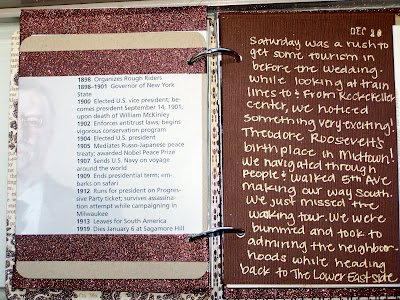 1898 Organizes Rough Riders
1898–1901 Governor of New York
State
1900 Elected U.S. vice president; be-
comes president September 14, 1901,
upon death of William McKinley
1902 Enforces antitrust laws; begins
vigorous conservation program
1904 Elected U.S. president
1905 Mediates Russo-Japanese peace
treaty; awarded Nobel Peace Prize
1907 Sends U.S. Navy on voyage
around the world
1909 Ends presidential term; em-
barks on safari
1912 Runs for president on Progres-
sive Party ticket; survives assassina-
tion attempt while campaigning in
Milwaukee
1913 Leaves for South America
1919 Dies January 6 at Sagamore Hill
DEC 20
Saturday was a rush to
get some tourism in
before the wedding.
While looking at train
lines to & from Rockefeller
center, we noticed
something very exciting!
Theodore Roosevelt's
birthplace in Midtown!
We navigated through
people & walked 5th Ave.
making our way south.
We just missed the
walking tour. We were
bummed and took to
admiring the neighbor-
hoods while heading
back to The Lower East side